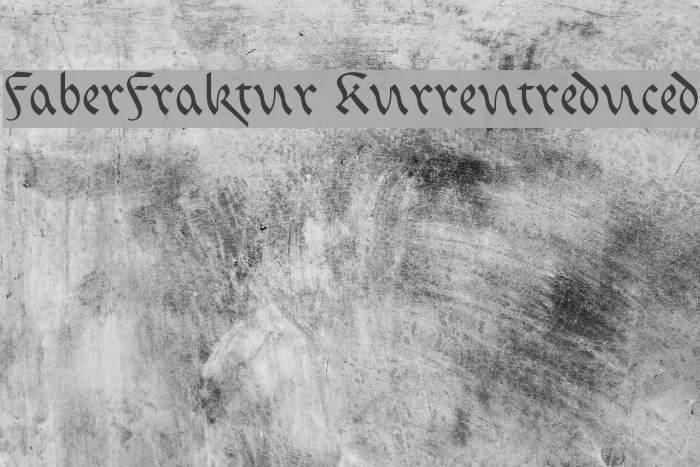 FaberFraktur Kurrentreduced